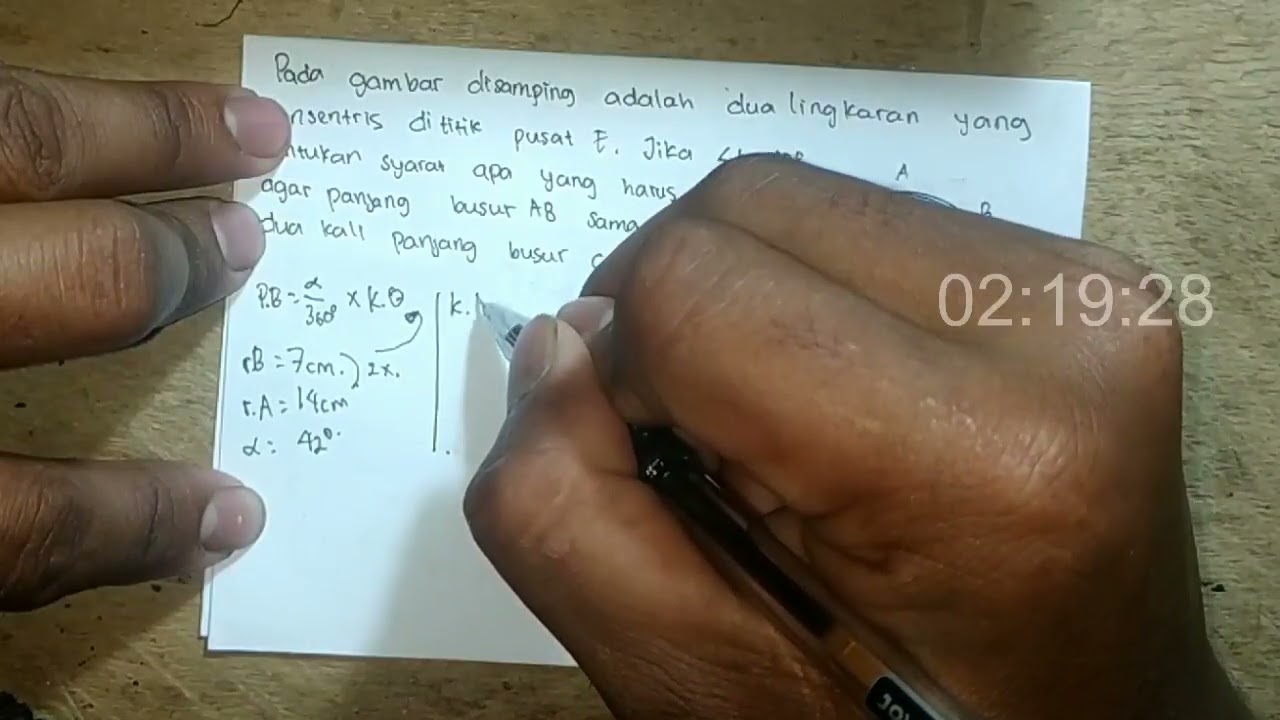 Pada gambar disamping adalah dua lingkaran yang
nsentris dititik pusat E. Jika
ntukan syarat apa yang harus
agar panjang busur AB sama
dua kali panjang busur
A
B
P.B = α/360° x K.O
rB = 7cm. ) 2x.
r.A = 14cm
α = 42°.
K.
02:19:28
JOY